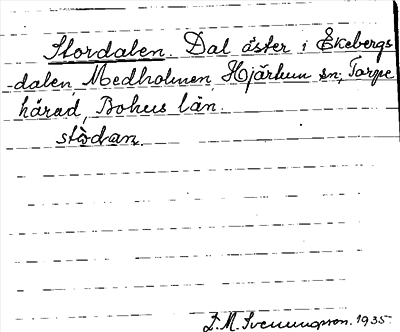 Stordalen. Dal öster i Ekebergs
-dalen, Medholmen, Hjärtum sn; Torpe
härad, Bohus län.
stòdan.
D. M. Svenungsson. 1935.